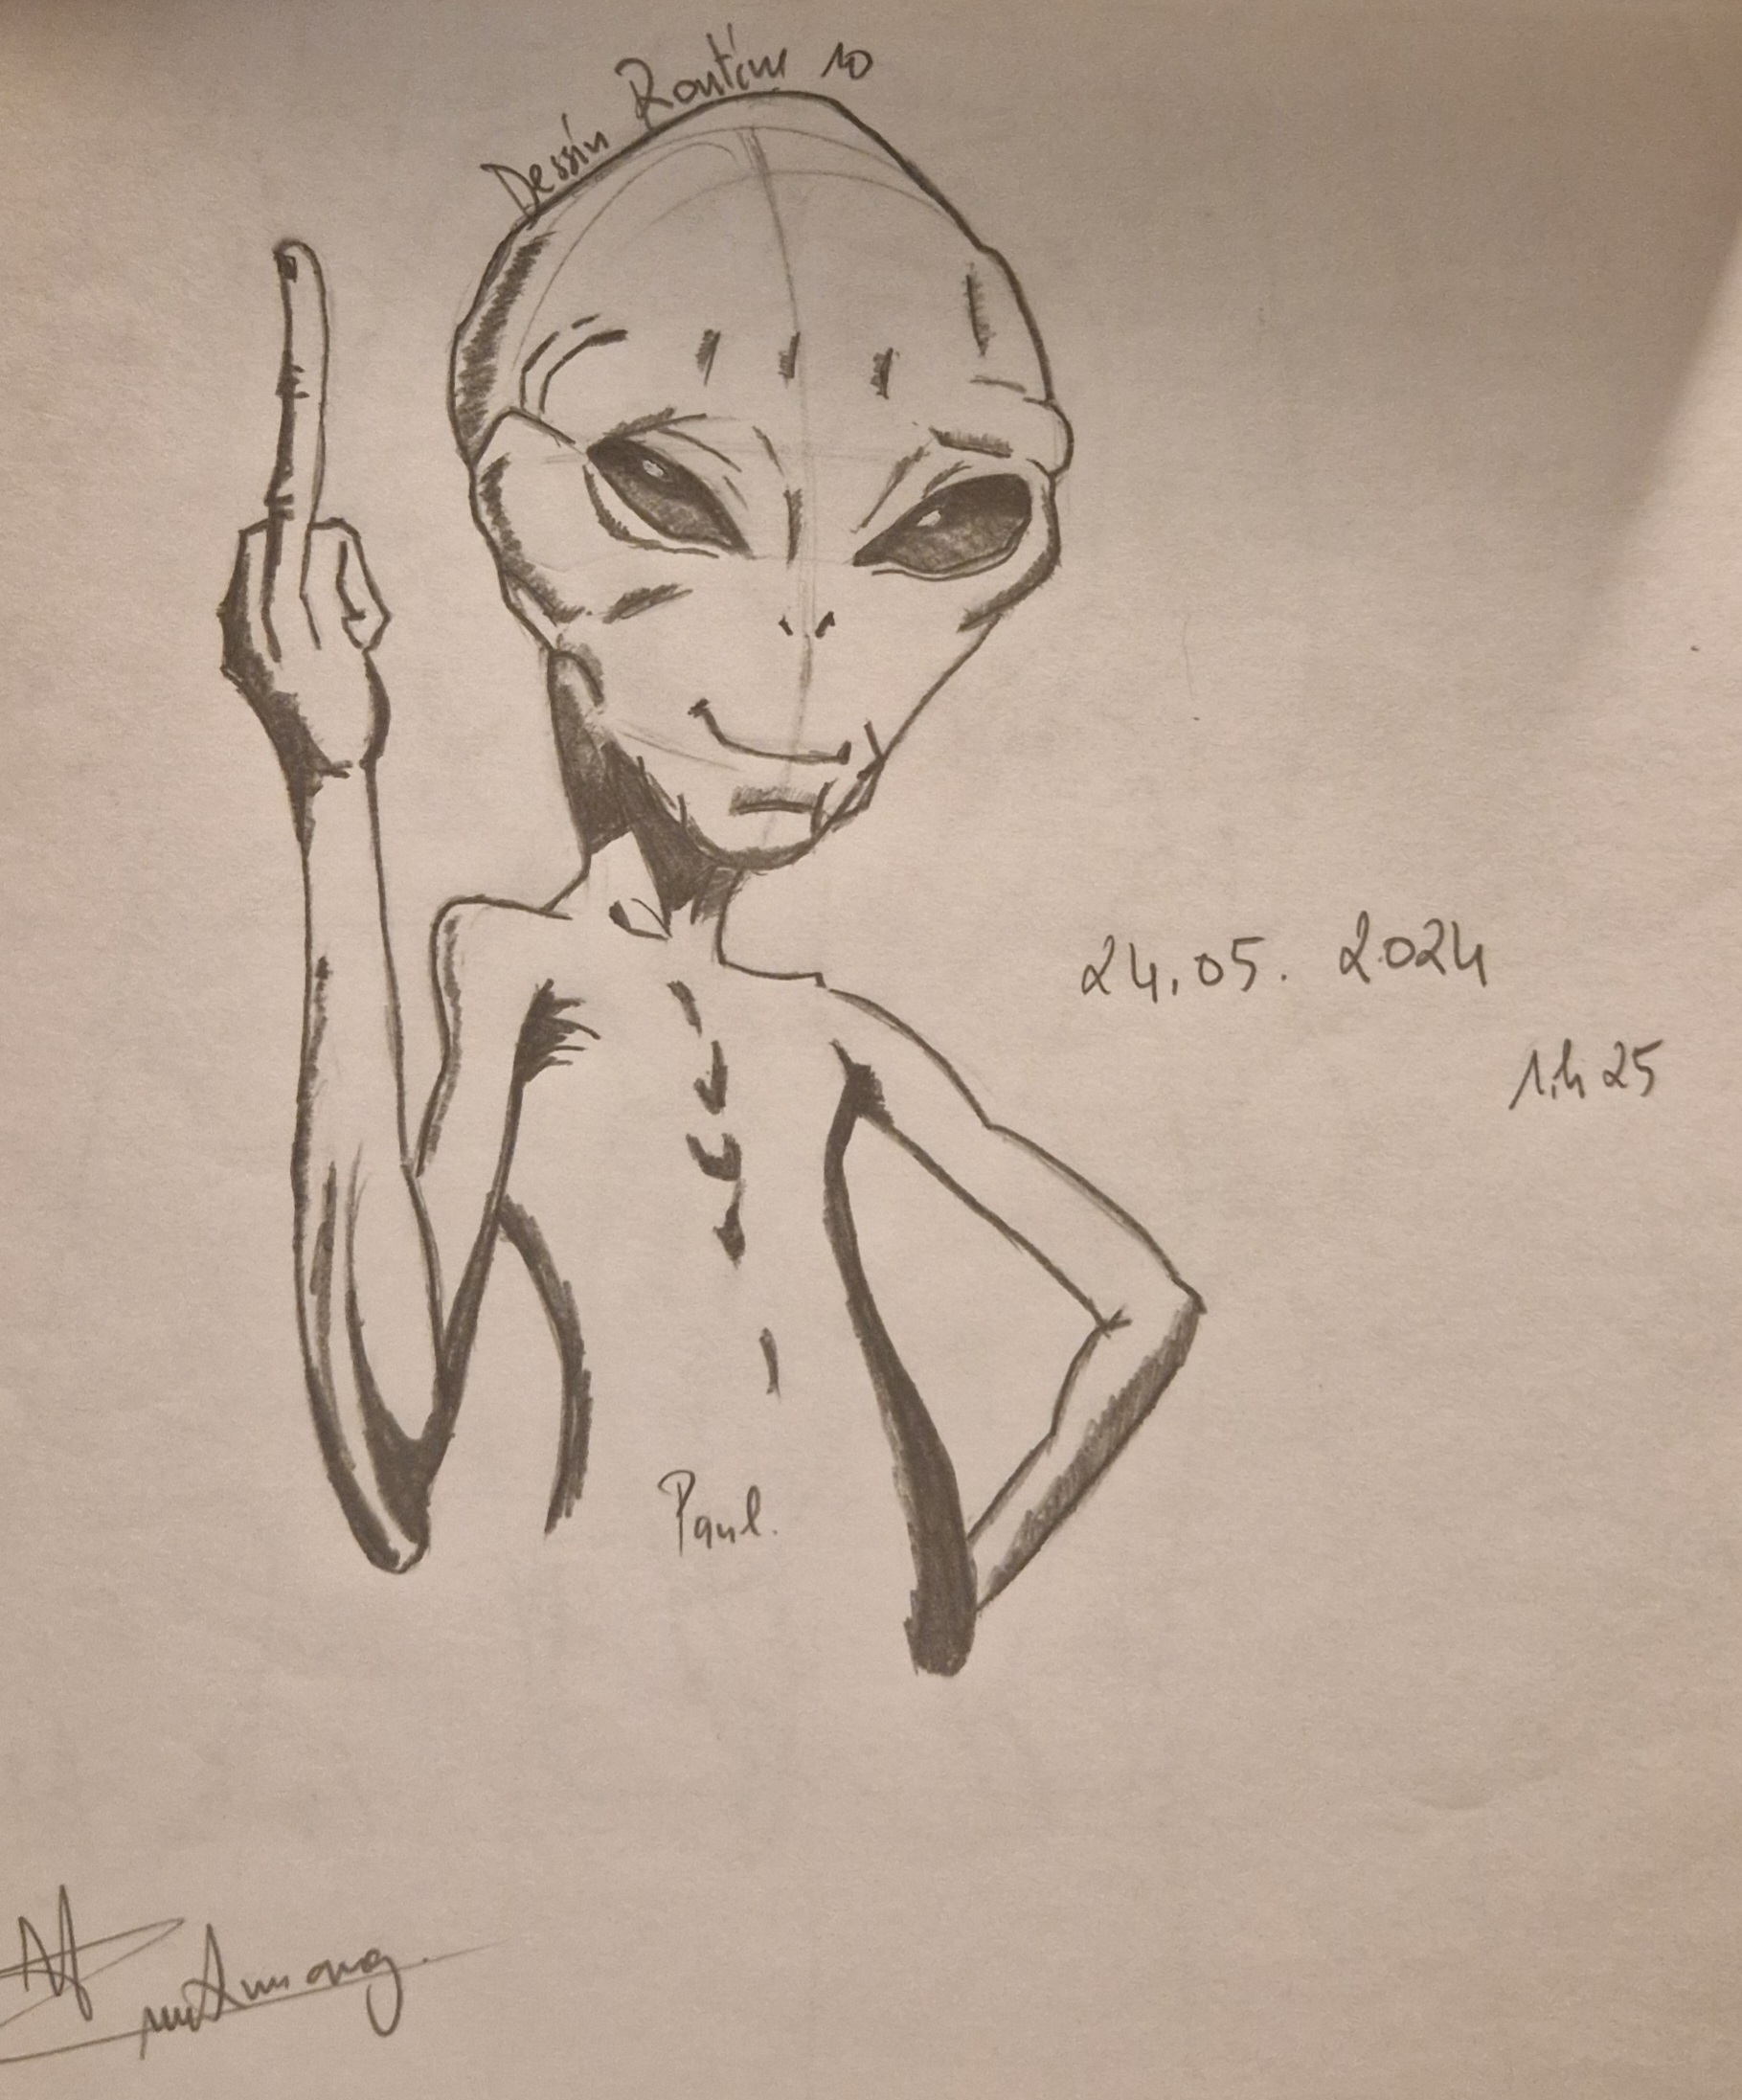 Dessin Routine 10
24.05.2024
1h25
Paul.